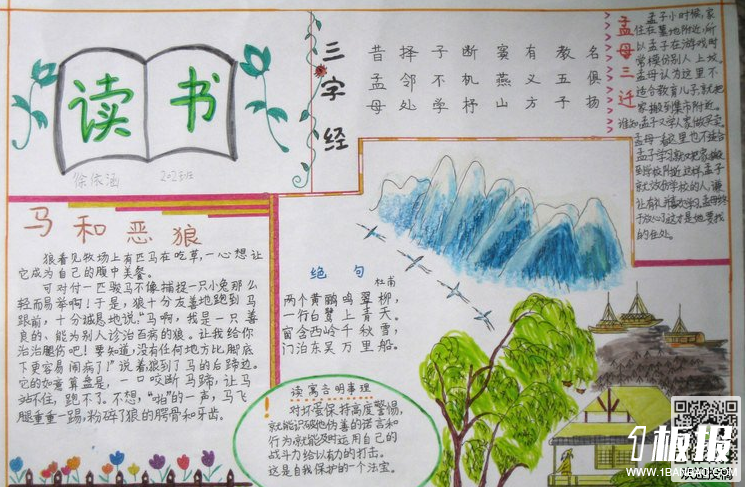 读书
徐依涵 202班
三字经
昔孟母
择邻处
子不学
断机杼
窦燕山
有义方
教五子
名俱扬
孟母三迁
孟子小时候,家
住在墓地附近,所
以孟子在游戏时
常模仿别人上坟。
孟母认为这里不
适合教育儿子,就把
家搬到集市附近。
谁知孟子又学人家做买卖。
孟母
到学校附近,这样孟子
就效仿学校的人,谦
马和恶狼
狼看见牧场上有匹马在吃草,一心想让
它成为自己的腹中美餐。
可对付一匹骏马不像捕捉一只小兔那么
轻而易举啊!于是,狼十分友善地跑到马
跟前,十分诚恳地说:“马啊,我是一只善
良的、能为别人诊治百病的狼。让我给你
治治腿伤吧!要知道,没有任何地方比脚底
下更容易闹病了!”说着狼到了马的后蹄边。
它的如意算盘是,一口咬断马蹄,让马
站不住,跑不了。不想,“啪”的一声,马飞
腿重重一踢,粉碎了狼的腭骨和牙齿。
绝句
杜甫
两个黄鹂鸣翠柳,
一行白鹭上青天。
窗含西岭千秋雪,
门泊东吴万里船。
读寓言明事理
对坏蛋保持高度警惕,
就能识破他伪善的诺言和
行为,就能及时运用自己的
战斗力给以有力的打击。
这是自我保护的一个法宝。
1板报
WWW.1BANBAO.COM
欢迎投稿